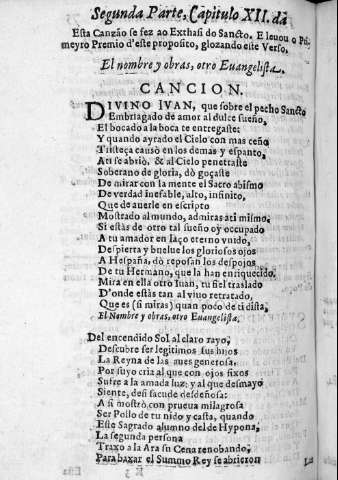 Segunda Parte, Capitulo XII. da
Esta Canzão se fez ao Exthasi do Sancto. E leuou o Pri
meyro Premio d'este proposito, glozando eite Verso,
El nombre y obras, otro Euangelista.
CANCION.
DIVINO IVAN, que sobre el pecho Sancto
Embriagado de amor al dulce sueño,
El bocado a la boca te entregaste:
Y quando ayrado el Cielo con mas ceño
Tristeça causò en los demas y espanto,
Ati se abriò, & al Cielo penetraste
Soberano de gloria, dò goçaste
De mirar con la mente el Sacro abismo
De verdad inefable, alto, infinito,
Que de auerle en escripto
Mostrado al mundo, admiras ati mismo,
Si estàs de otro tal sueño oy occupado
A tu amador en laço eterno vnido,
Despierta y buelue los gloriosos ojos
A Hespaña, dò reposan los despojos
De tu Hermano, que la han enriquecido,
Mira en ella otro Iuan, tu fiel traslado
D'onde estàs tan al viuo retratado,
Que es (si miras) quan poco de ti dista,
El Nombre y obras, otro Euangelista.
Del encendido Sol al claro rayo,
Descubre ser legitimos sus hijos
La Reyna de las aues generosa.
Por suyo cria al que con ojos fixos
Sufre a la amada luz: y al que desmayo
Siente, desi sacude desdeñosa:
A si mostrò, con prueua milagrosa
Ser Pollo de tu nido y casta, quando
Este Sagrado alumno del de Hypona,
La segunda persona
Traxo a la Ara su Cena renobando,
Para baxar el Summo Rey se abrieron
Las